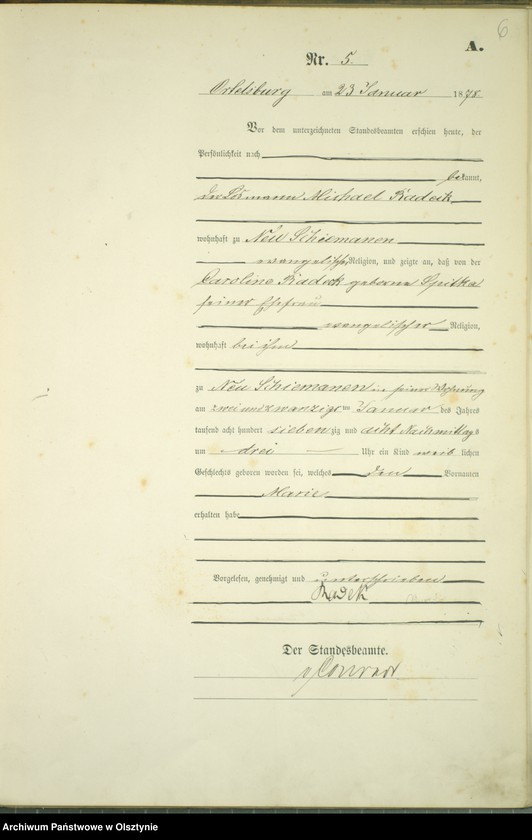 6
A.
Nr. 5.
Ortelsburg am 23 Januar 1878
Vor dem unterzeichneten Standesbeamten erschien heute, der
Persönlichkeit nach
bekannt,
der Losmann Michael Radeck
wohnhaft zu Neu Schiemanen
evangelischer Religion, und zeigte an, daß von der
Caroline Radeck geborene Spitka
seiner Ehefrau
evangelischer Religion,
wohnhaft bei ihm
zu Neu Schiemanen in seiner Wohnung
am zwei und zwanzigsten Januar des Jahres
tausend acht hundert siebenzig und acht Nachmittags
um drei Uhr ein Kind weiblichen
Geschlechts geboren worden sei, welches den Vornamen
Marie
erhalten habe
Vorgelesen, genehmigt und unterschrieben
Radek
Der Standesbeamte.
Conrad
Archiwum Państwowe w Olsztynie